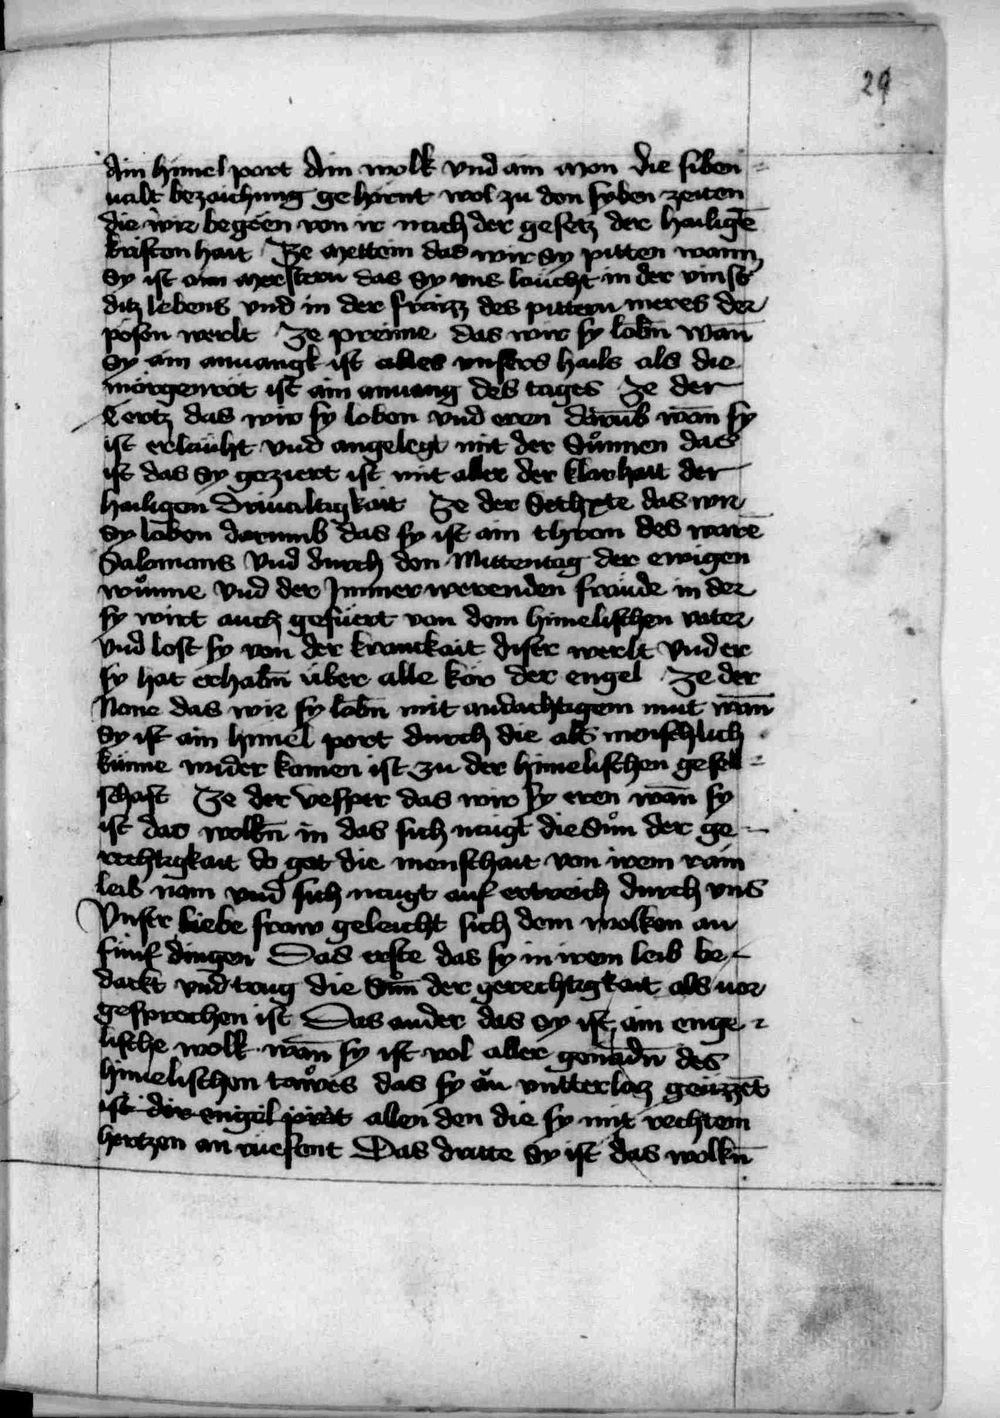 29
Ain himel port Ain wolk vnd ain mon die siben
ualt bezaichung gehörnt wol zu den syben zeiten
die wir begeen von ir nach der gesetz der hailigē
kristenhait Ze mettein das wir sy pitten wann
sy ist ain merstern das sy vns läucht in der vinst
ditz lebens vnd in der fraizz des pittern meres der
pösen werlt Ze preime das wir sy lobn̄ wan̄
sy ain anuangk ist alles vnsers hails als die
morgenröt ist ain anuang des tages Ze der
Tertz das wir sy loben vnd eren darūb wan̄ sy
ist erläuht vnd angelegt mit der Sůnnen das
ist das sy geziert ist mit aller der klarhait der
hailigen driualtigkait Ze der Sechxte das wir
sy loben darumb das sy ist ain thron des warē
Salomons vnd durch den Mittentag der ewigen
wůnne vnd der Immer werenden fräude in der
sy wirt auch gefüert von dem himelischen vater
vnd lost sy von der kranckait diser werlt vnd er
sy hat erhabn̄ über alle kör der engel Ze der
None das wir sy lobn̄ mit andachtigem mut wan̄
sy ist ain himel port durch die als menschlich
künne wider komen ist zu der himelischen gesell
schaft Ze der vesper das wir sy eren wan̄ sy
ist das wolkn̄ in das sich naigt die Sůn der ge
rechtigkait do got die menschait von irem rain
leib nam vnd sich naigt auf ertreich durch vns
Vnser liebe fraw geleicht sich dem wolken an
fünf dingen Das erste das sy in irem leib be
dackt vnd trug die Sůn̄ der gerechtigkait als uor
gesprochen ist Das ander das sy ist ain enge
lische wolk wan̄ sy ist vol aller genadn̄ des
himelischen tawes das sy än vntterlaz geüzzēt
ist allen den die sy mit rechtem
hertzen an rüefent Das dritte sy ist das wolkn̄